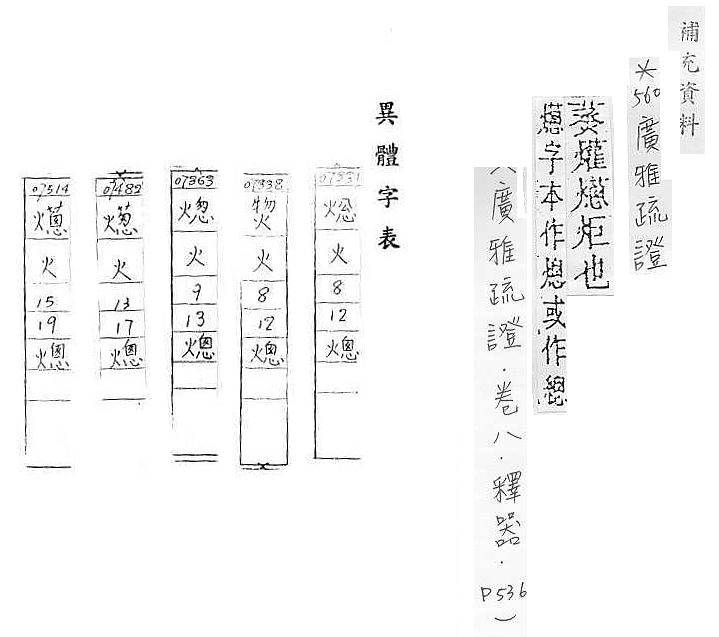 補充資料
*560廣雅疏證
蒸爟熜炬也
熜字本作
或作總
廣雅疏證．卷八．釋器．P536）
異體字表
火
8
12
熜
07338
火
8
12
熜
07363
火
9
13
熜
07482
火
13
17
熜
07514
火
15
19
熜